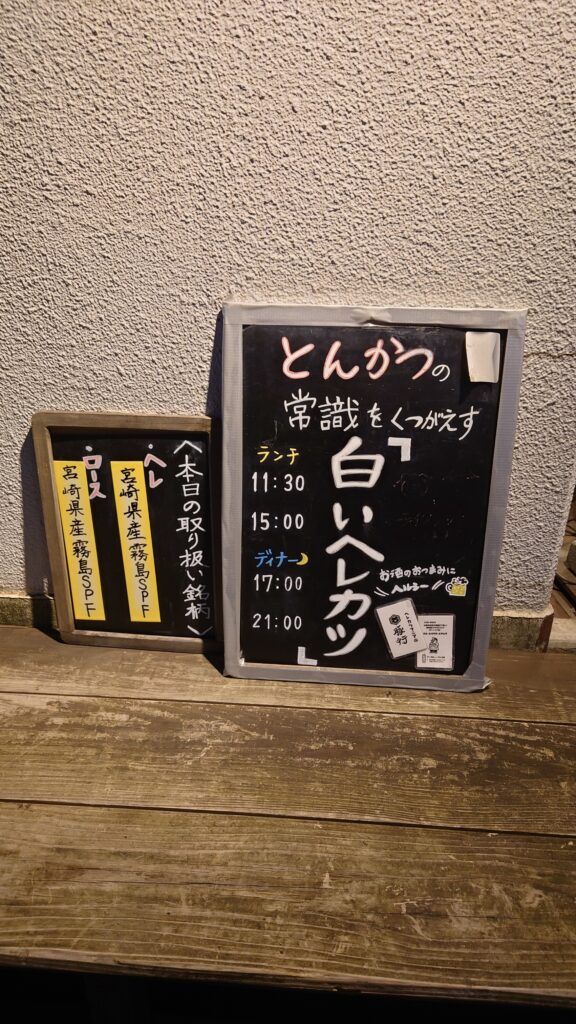 〈本日の取り扱い銘柄〉
・ヘレ
宮崎県産霧島SPF
・ロース
宮崎県産霧島SPF
とんかつの
常識をくつがえす
「白いヘレカツ」
ランチ
11:30
15:00
ディナー
17:00
21:00
お酒のおつまみに
ヘルシー